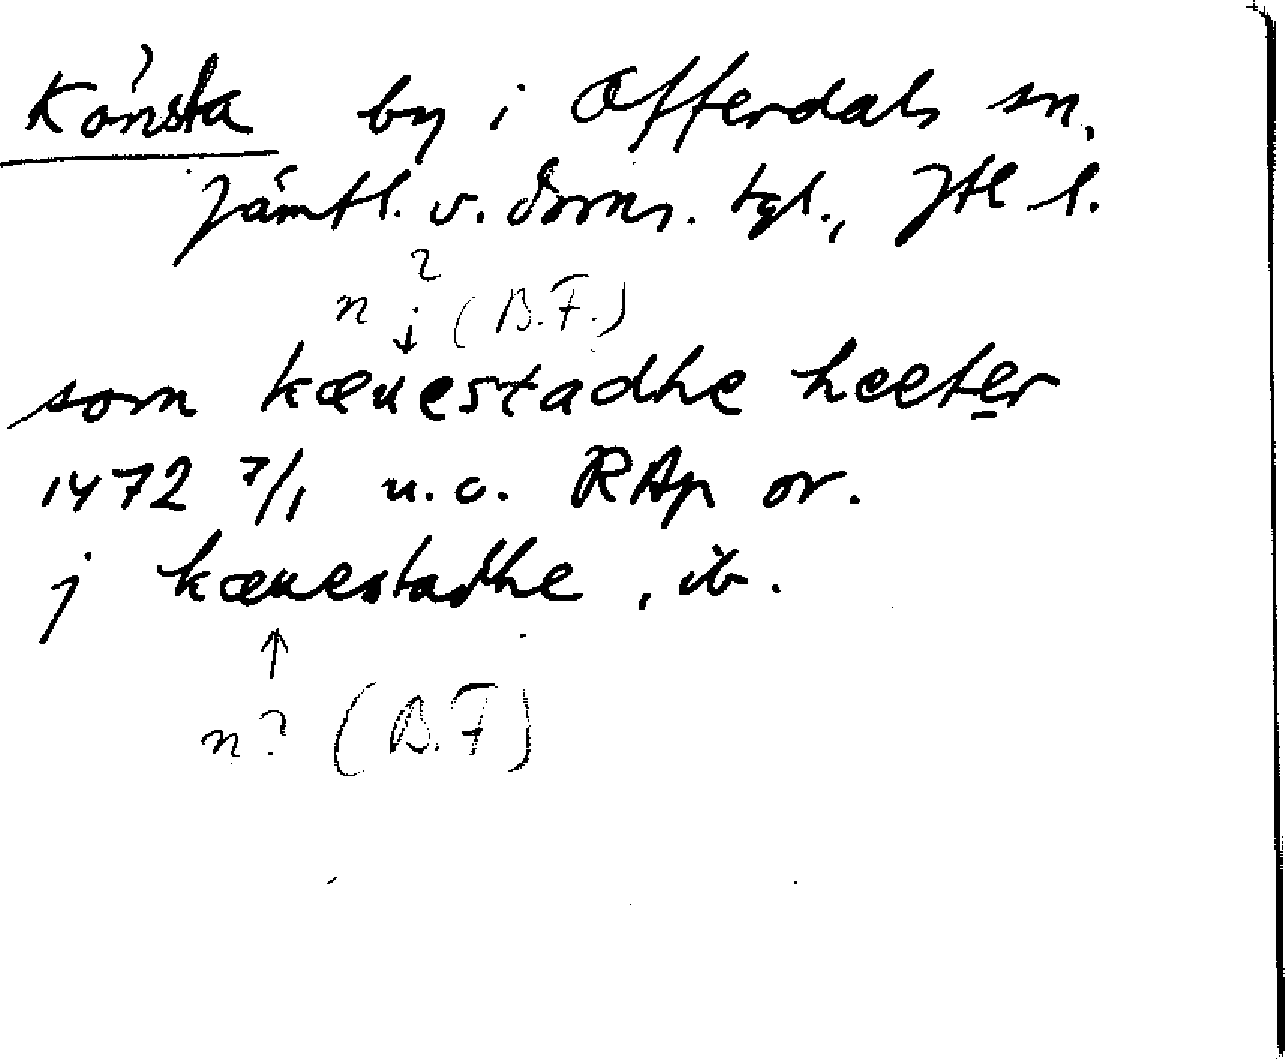 Könsta by i Offerdals sn,
Jämtl. v. doms. tgl., Jtl l.
n ? (B.F.)
som kæuestadhe heeter
1472 7/1 u.o. RAp or.
j kæuestadhe, ib.
n? (B.F)